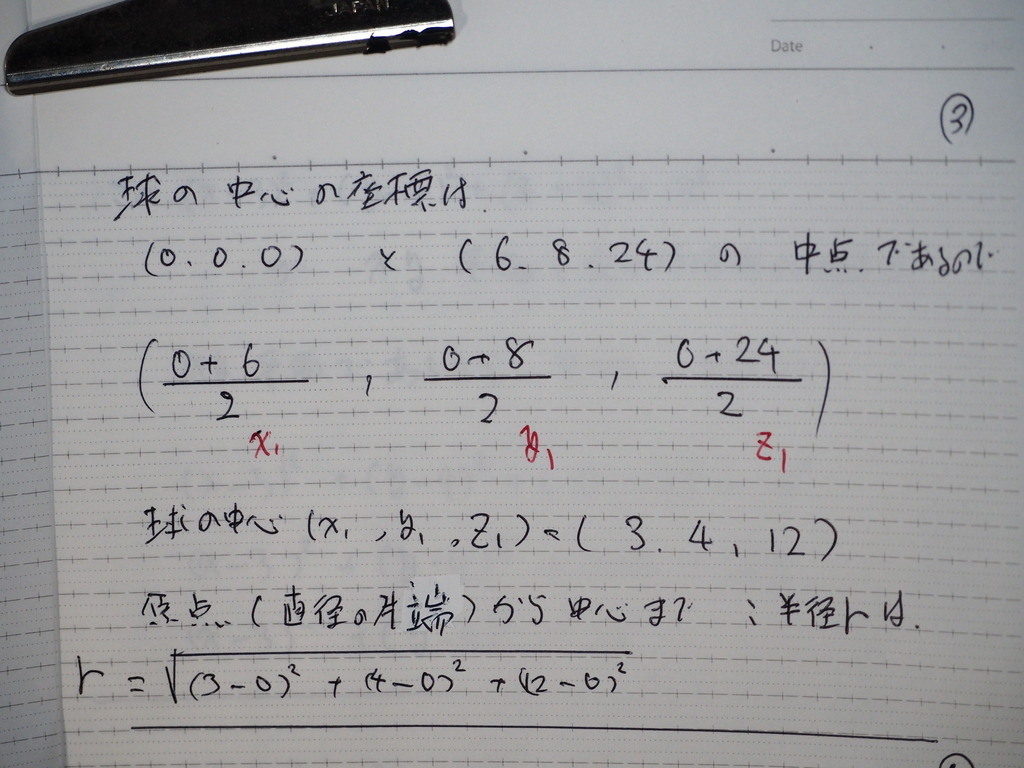 JAPAN
Date
③
球の中心の座標は
(0.0.0) と (6.8.24) の 中点.であるので
(0+6/2 , 0+8/2 , 0+24/2)
x₁ y₁ z₁
球の中心 (x₁, y₁, z₁) = (3.4,12)
原点 (直径の片端) から 中心まで : 半径rは.
r = √(3-0)² + (4-0)² + (12-0)²